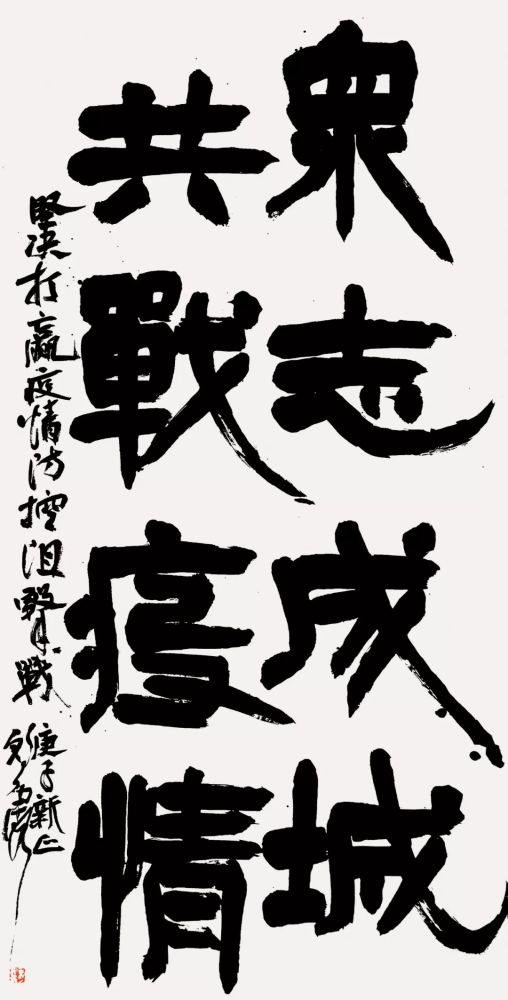 眾志成城
共戰疫情
堅決打贏疫情防控阻擊戰
庚子新正